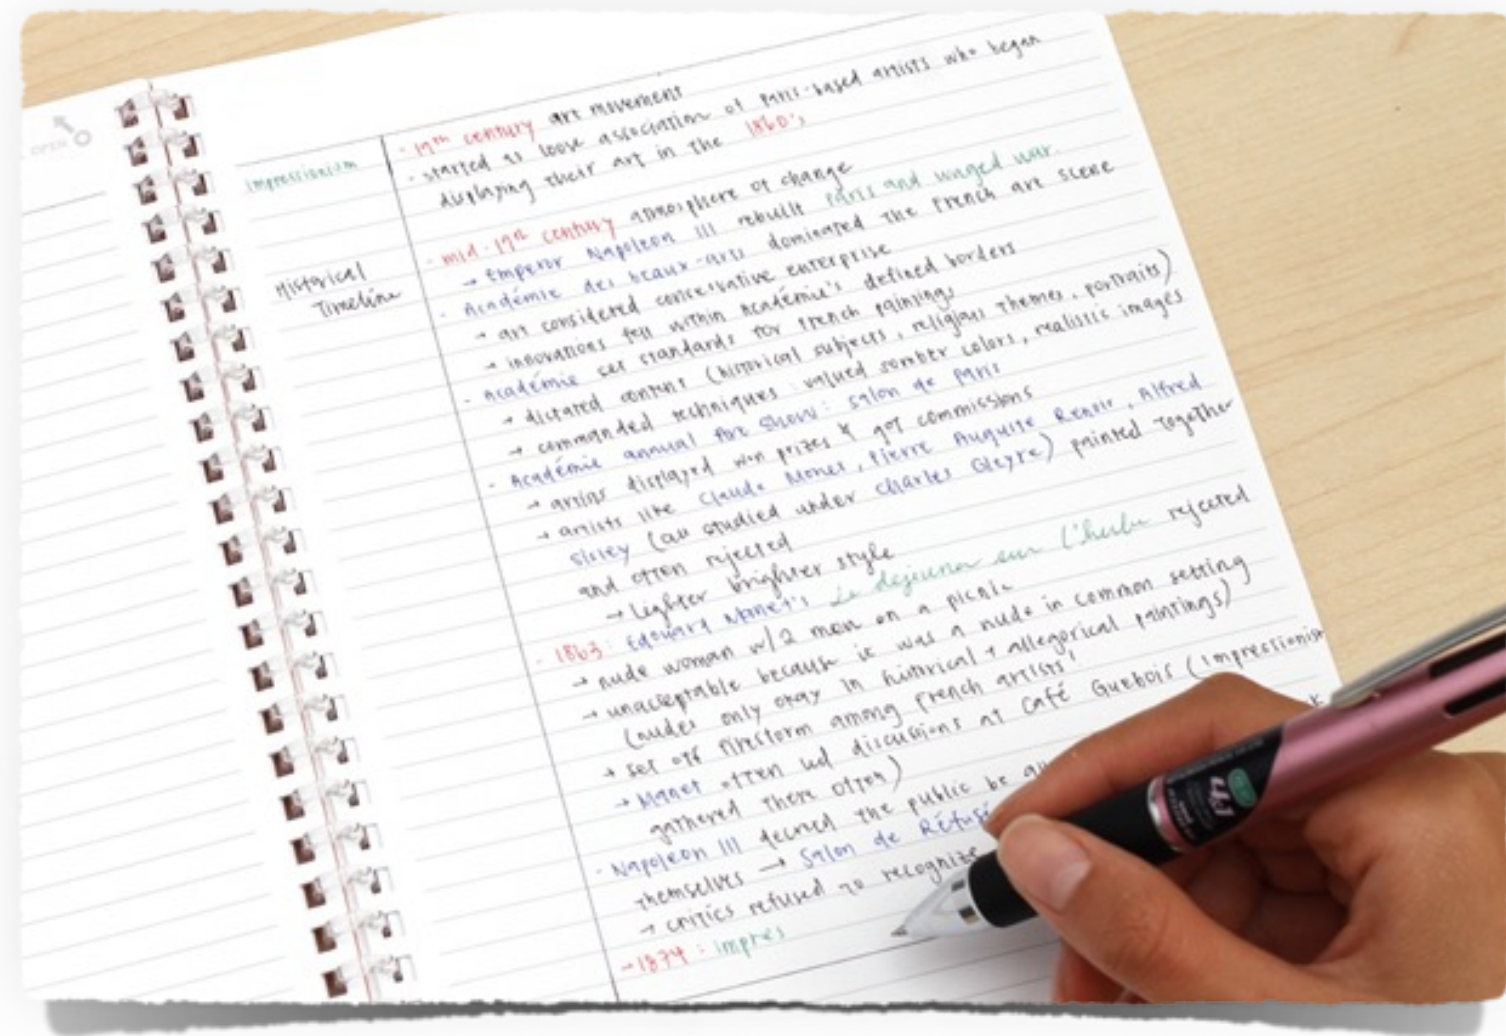 OPEN
Impressionism
- 19th century art movement
- started as loose association of Paris-based artists who began
displaying their art in the 1860's
Historical
Timeline
- mid-19th century atmosphere of change
→ Emperor Napoleon III rebuilt Paris and waged war
- Académie des beaux-arts dominated the French art scene
→ art considered conservative enterprise
→ innovations fell within Académie's defined borders
- Académie set standards for French paintings
→ dictated content (historical subjects, religious themes, portraits)
→ commanded techniques: valued somber colors, realistic images
- Académie annual Art Show: Salon de Paris
→ artists displayed won prizes & got commissions
→ artists like Claude Monet, Pierre Auguste Renoir, Alfred
Sisley (all studied under Charles Gleyre) painted together
and often rejected
→ lighter brighter style
- 1863: Edouard Manet's Le dejeuner sur l'herbe rejected
→ nude woman w/ 2 men on a picnic
→ unacceptable because it was a nude in common setting
(nudes only okay in historical + allegorical paintings)
→ set off firestorm among French artists!
→ Manet often led discussions at Café Guebois (Impressionism
gathered there often)
- Napoleon III decreed the public be
themselves → Salon de Réfusé
→ critics refused to recognize
→ 1874: Impres